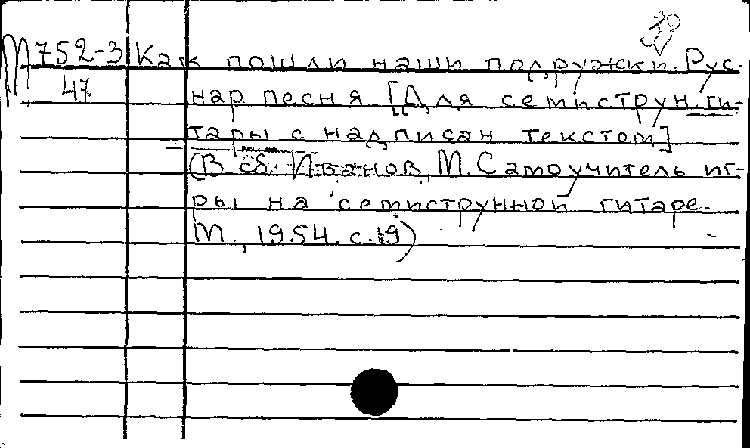 М 752-3 Как пошли наши подружки. Рус.
47 нар песня [Для семиструн. ги-
тары с надписан текстом]
(В сб. Иванов, М. Самоучитель иг-
ры на семиструнной гитаре.
М., 1954. с. 19)